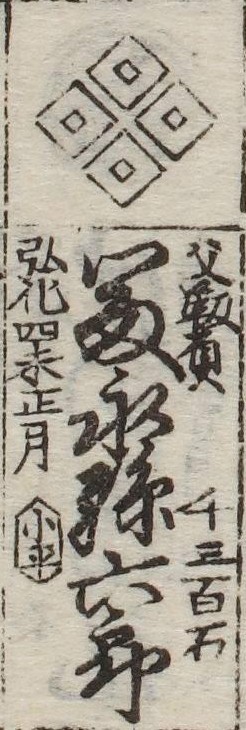 父數負
千三百石
冨永孫六郎
弘化四未正月
小平